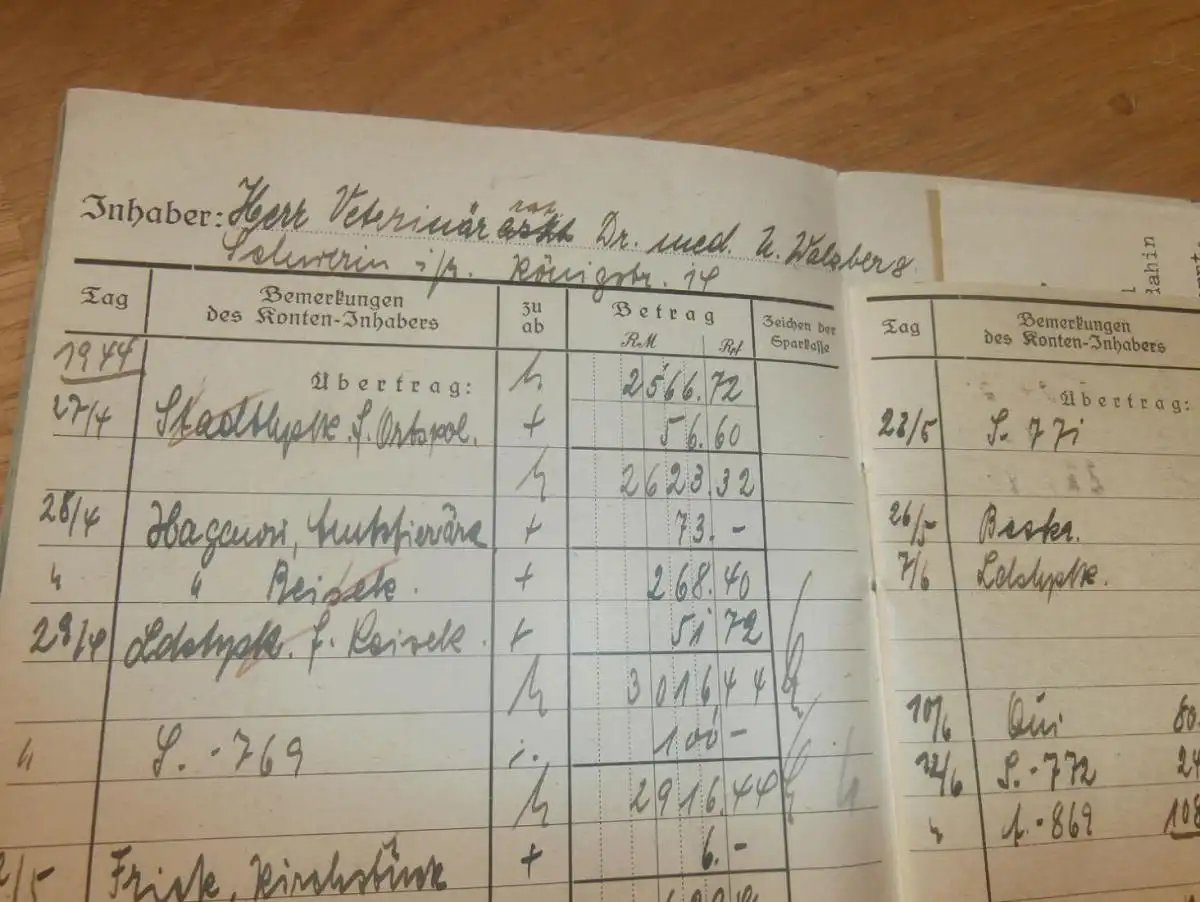 Inhaber: Herr Veterinärrat Dr. med. U. Walsberg
Schwerin i/M. Königstr. 14
Tag Bemerkungen des Konten-Inhabers zu ab Betrag RM Rpf Zeichen der Sparkasse
1944 Übertrag: 2566.72
27/4 Stadthptk. f. Ortspol. + 56.60
2623.32
28/4 Hagenow, Amtstierärz + 73.-
" " Reisek. + 268.40
29/4 Ldshptk. f. Reisek. + 51 72
3016,44
" S. - 769 100 -
2916.44
2/5 Frick, Kirchstück + 6.-
Tag Bemerkungen des Konten-Inhabers
Übertrag:
23/5 S. 771
26/5
7/6 Ldshptk.
10/6
12/6 S. - 772 24
" 869 108